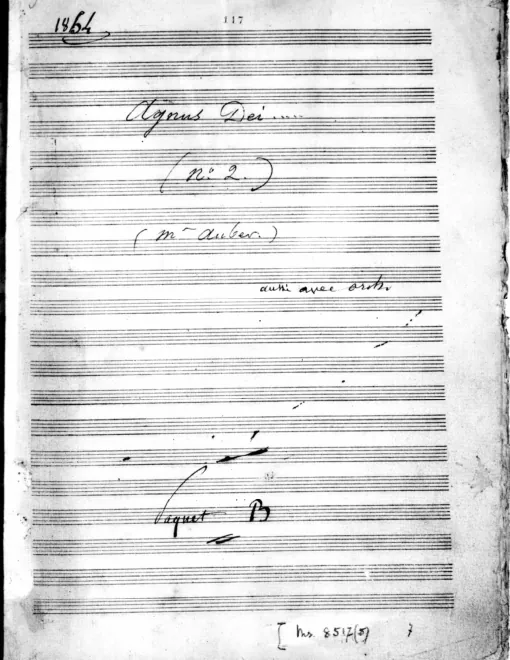 1864
117
Agnus Dei....
(nº 2.)
(mr auber.)
aussi avec orch.
Paquet B
[Ms. 8517(5)